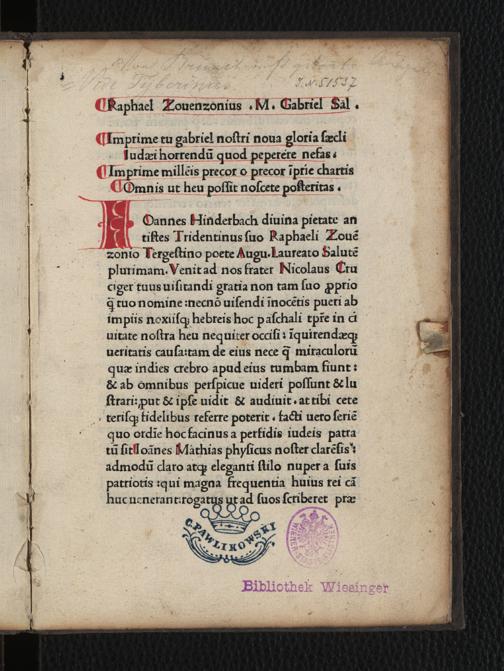 Vide Tyberinus
I.N. 51537
Raphael Zouenzonius . M. Gabriel Sal .
Imprime tu gabriel nostri noua gloria sæcli
Iudæi horrendū quod peperere nefas.
Imprime milleis precor o precor īprie chartis
Omnis ut heu possit noscete posteritas .
IOannes Hinderbach diuina pietate an
tistes Tridentinus suo Raphaeli Zouē
zonio Tergestino poete Augu. Laureato Salutē
plurimam. Venit ad nos frater Nicolaus Cru
ciger tuus uisitandi gratia non tam suo ꝓprio
q̄ tuo nomine : necnō uisendi īnocētis pueri ab
impiis noxiisq; hebreis hoc paschali tp̄re in ci
uitate nostra heu nequiter occisi : īquirendæq;
ueritatis causa: tam de eius nece q̄ miraculorū
quæ indies crebro apud eius tumbam fiunt :
& ab omnibus perspicue uideri possunt & lu
strari: put & ipse uidit & audiuit . at tibi cete
terisq; fidelibus referre poterit . facti uero seriē
quo ordīe hoc facinus a perfidis iudeis patra
tū sit Ioānes Mathias physicus noster clarēsis :
admodū claro atq; eleganti stilo nuper a suis
patriotis : qui magna frequentia huius rei cā
huc uenerant: rogatus ut ad suos scriberet præ
C. PAWLIKOWSKI
Bibliothek Wiesinger